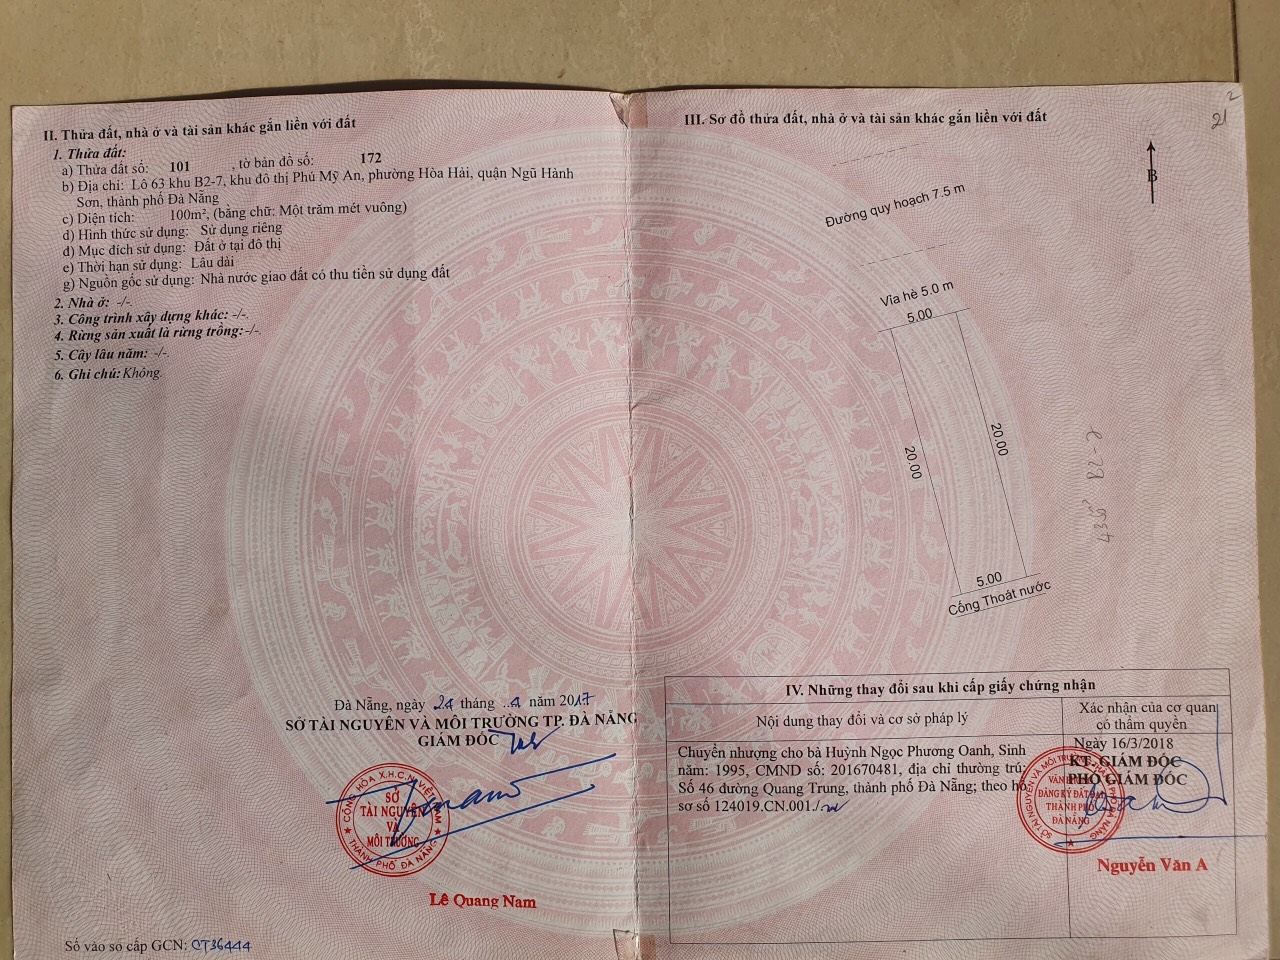 II. Thửa đất, nhà ở và tài sản khác gắn liền với đất
1. Thửa đất:
a) Thửa đất số: 101 , tờ bản đồ số: 172
b) Địa chỉ: Lô 63 khu B2-7, khu đô thị Phú Mỹ An, phường Hòa Hải, quận Ngũ Hành
Sơn, thành phố Đà Nẵng
c) Diện tích: 100m², (bằng chữ: Một trăm mét vuông)
d) Hình thức sử dụng: Sử dụng riêng
đ) Mục đích sử dụng: Đất ở tại đô thị
e) Thời hạn sử dụng: Lâu dài
g) Nguồn gốc sử dụng: Nhà nước giao đất có thu tiền sử dụng đất
2. Nhà ở: -/-.
3. Công trình xây dựng khác: -/-.
4. Rừng sản xuất là rừng trồng: -/-.
5. Cây lâu năm: -/-.
6. Ghi chú: Không.
Đà Nẵng, ngày 24 tháng ..4 năm 2017
SỞ TÀI NGUYÊN VÀ MÔI TRƯỜNG TP. ĐÀ NẴNG
GIÁM ĐỐC
CỘNG HÒA X.H.C.N VIỆT NAM
SỞ
TÀI NGUYÊN
VÀ
MÔI TRƯỜNG
THÀNH PHỐ ĐÀ NẴNG
Lê Quang Nam
Số vào sổ cấp GCN: CT36444
III. Sơ đồ thửa đất, nhà ở và tài sản khác gắn liền với đất
21
2
B
Đường quy hoạch 7.5 m
Vỉa hè 5.0 m
5.00
20.00
20.00
5.00
Cống Thoát nước
IV. Những thay đổi sau khi cấp giấy chứng nhận
Nội dung thay đổi và cơ sở pháp lý
Xác nhận của cơ quan
có thẩm quyền
Chuyển nhượng cho bà Huỳnh Ngọc Phương Oanh, Sinh
năm: 1995, CMND số: 201670481, địa chỉ thường trú:
Số 46 đường Quang Trung, thành phố Đà Nẵng; theo hồ
sơ số 124019.CN.001./.
Ngày 16/3/2018
KT. GIÁM ĐỐC
PHÓ GIÁM ĐỐC
ĐĂNG KÝ ĐẤT ĐAI
THÀNH PHỐ
ĐÀ NẴNG
Nguyễn Văn A